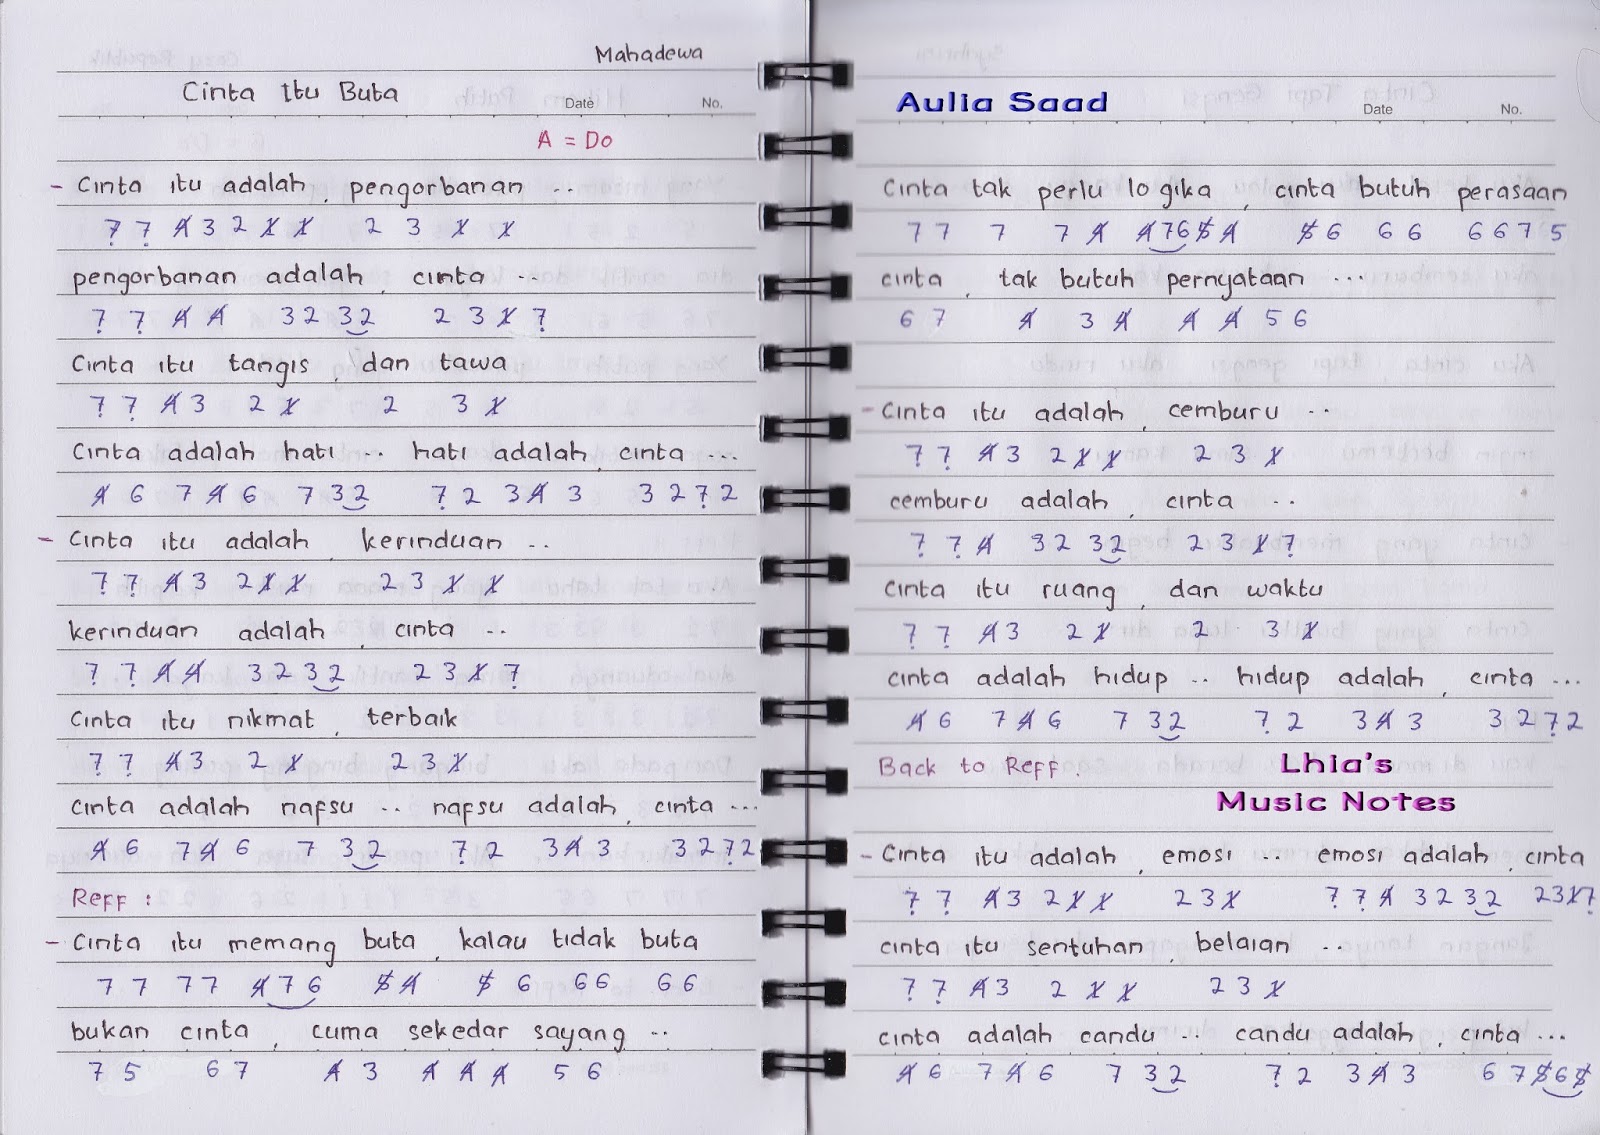 Mahadewa
Cinta Itu Buta
Date No.
A = Do
- Cinta itu adalah, pengorbanan ..
7̣ 7̣ 4̸ 3 2 1̸ 1̸ 2 3 1̸ 1̸
pengorbanan adalah, cinta ...
7̣ 7̣ 4̸ 4̸ 3 2 3 2 2 3 1̸ 7̣
Cinta itu tangis, dan tawa
7̣ 7̣ 4̸ 3 2 1̸ 2 3 1̸
Cinta adalah hati .. hati adalah, cinta ...
4̸ 6 7 4̸ 6 7 3 2 7̣ 2 3 4̸ 3 3 2 7̣ 2
- Cinta itu adalah, kerinduan ..
7̣ 7̣ 4̸ 3 2 1̸ 1̸ 2 3 1̸ 1̸
kerinduan adalah, cinta ..
7̣ 7̣ 4̸ 4̸ 3 2 3 2 2 3 1̸ 7̣
Cinta itu nikmat, terbaik
7̣ 7̣ 4̸ 3 2 1̸ 2 3 1̸
Cinta adalah nafsu .. nafsu adalah, cinta ...
4̸ 6 7 4̸ 6 7 3 2 7̣ 2 3 4̸ 3 3 2 7̣ 2
Reff :
- Cinta itu memang buta, kalau tidak buta
7 7 7 7 4̸ 7 6 5̸ 4̸ 5̸ 6 6 6 6 6
bukan cinta, cuma sekedar sayang ..
7 5 6 7 4̸ 3 4̸ 4̸ 4̸ 5 6
Aulia Saad
Date No.
Cinta tak perlu logika, cinta butuh perasaan
7 7 7 7 4̸ 4̸ 7 6 5̸ 4̸ 5̸ 6 6 6 6 6 7 5
cinta, tak butuh pernyataan ...
6 7 4̸ 3 4̸ 4̸ 4̸ 5 6
- Cinta itu adalah, cemburu ..
7̣ 7̣ 4̸ 3 2 1̸ 1̸ 2 3 1̸
cemburu adalah, cinta ..
7̣ 7̣ 4̸ 3 2 3 2 2 3 1̸ 7̣
cinta itu ruang, dan waktu
7̣ 7̣ 4̸ 3 2 1̸ 2 3 1̸
cinta adalah hidup .. hidup adalah, cinta ...
4̸ 6 7 4̸ 6 7 3 2 7̣ 2 3 4̸ 3 3 2 7̣ 2
Back to Reff.
Lhia's
Music Notes
- Cinta itu adalah, emosi .. emosi adalah, cinta
7̣ 7̣ 4̸ 3 2 1̸ 1̸ 2 3 1̸ 7̣ 7̣ 4̸ 3 2 3 2 2 3 1̸ 7̣
cinta itu sentuhan, belaian ..
7̣ 7̣ 4̸ 3 2 1̸ 1̸ 2 3 1̸
cinta adalah candu .. candu adalah, cinta ...
4̸ 6 7 4̸ 6 7 3 2 7̣ 2 3 4̸ 3 6 7 5̸ 6 5̸